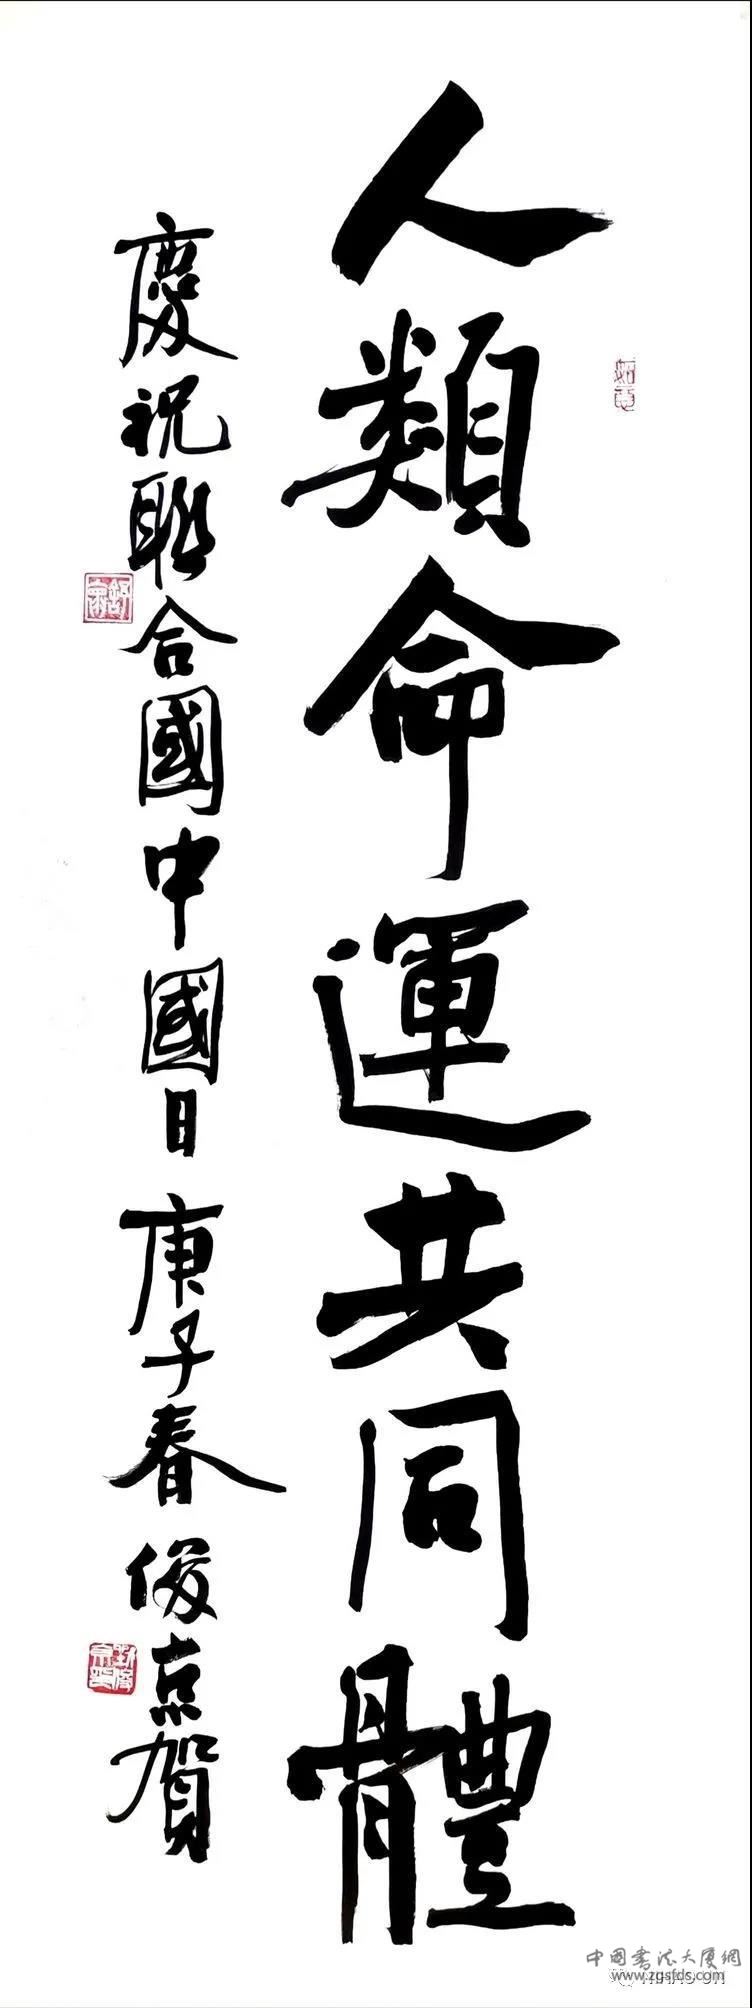 人類命運共同體
慶祝聯合國中國日 庚子春 俊京賀
如意
中国书法大厦網
www.zgsfds.com